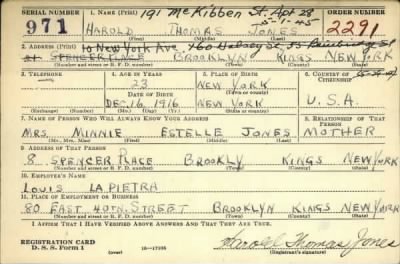 SERIAL NUMBER 1. NAME (Print) 191 McKibben St. Apt 28
5-1-45
971 HAROLD THOMAS JONES 2291
(First) (Middle) (Last)
2. ADDRESS (Print) 10 New York Ave. 760 Halsey St.
21 SPENCER PLACE BROOKLYN KINGS NEW YORK
(Number and street or R. F. D. number) (Town) (County) (State)
3. TELEPHONE 4. AGE IN YEARS 5. PLACE OF BIRTH 6. COUNTRY OF CITIZENSHIP
23 NEW YORK
DATE OF BIRTH (Town or county)
DEC. 16, 1916 NEW YORK U.S.A.
(Exchange) (Number) (Mo.) (Day) (Yr.) (State or country)
7. NAME OF PERSON WHO WILL ALWAYS KNOW YOUR ADDRESS 8. RELATIONSHIP OF THAT PERSON
MRS. MINNIE ESTELLE JONES MOTHER
(Mr., Mrs., Miss) (First) (Middle) (Last)
9. ADDRESS OF THAT PERSON
8 SPENCER PLACE BROOKLY KINGS NEW YORK
(Number and street or R. F. D. number) (Town) (County) (State)
10. EMPLOYER'S NAME
LOUIS LA PIETRA
11. PLACE OF EMPLOYMENT OR BUSINESS
80 EAST 40TH. STREET BROOKLYN KINGS NEW YORK
(Number and street or R. F. D. number) (Town) (County) (State)
I AFFIRM THAT I HAVE VERIFIED ABOVE ANSWERS AND THAT THEY ARE TRUE.
REGISTRATION CARD
D. S. S. FORM 1 (over) 16-17105 Harold Thomas Jones
(Registrant's signature)